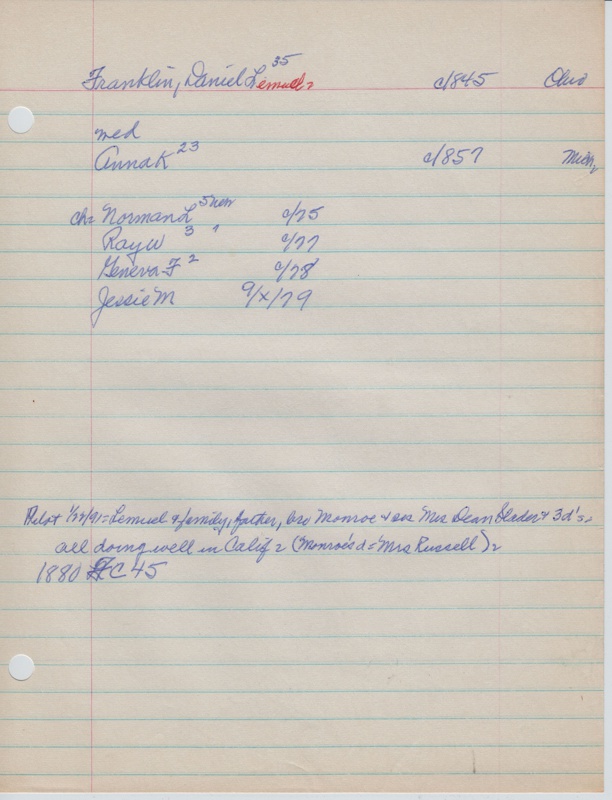 Franklin, Daniel Lemuel 35 c/1845 Ohio
med
Anna K 23 c/1857 Mich
ch= Norman L 5 c/75
Ray W 3 c/77
Geneva F 2 c/78
Jessie M 9/x/79
Pilot 1/22/91= Lemuel & family, father, bro Monroe & sis Mrs Dean & 3 d's
all doing well in Calif (Monroe's d = Mrs Russell)
1880 FC 45